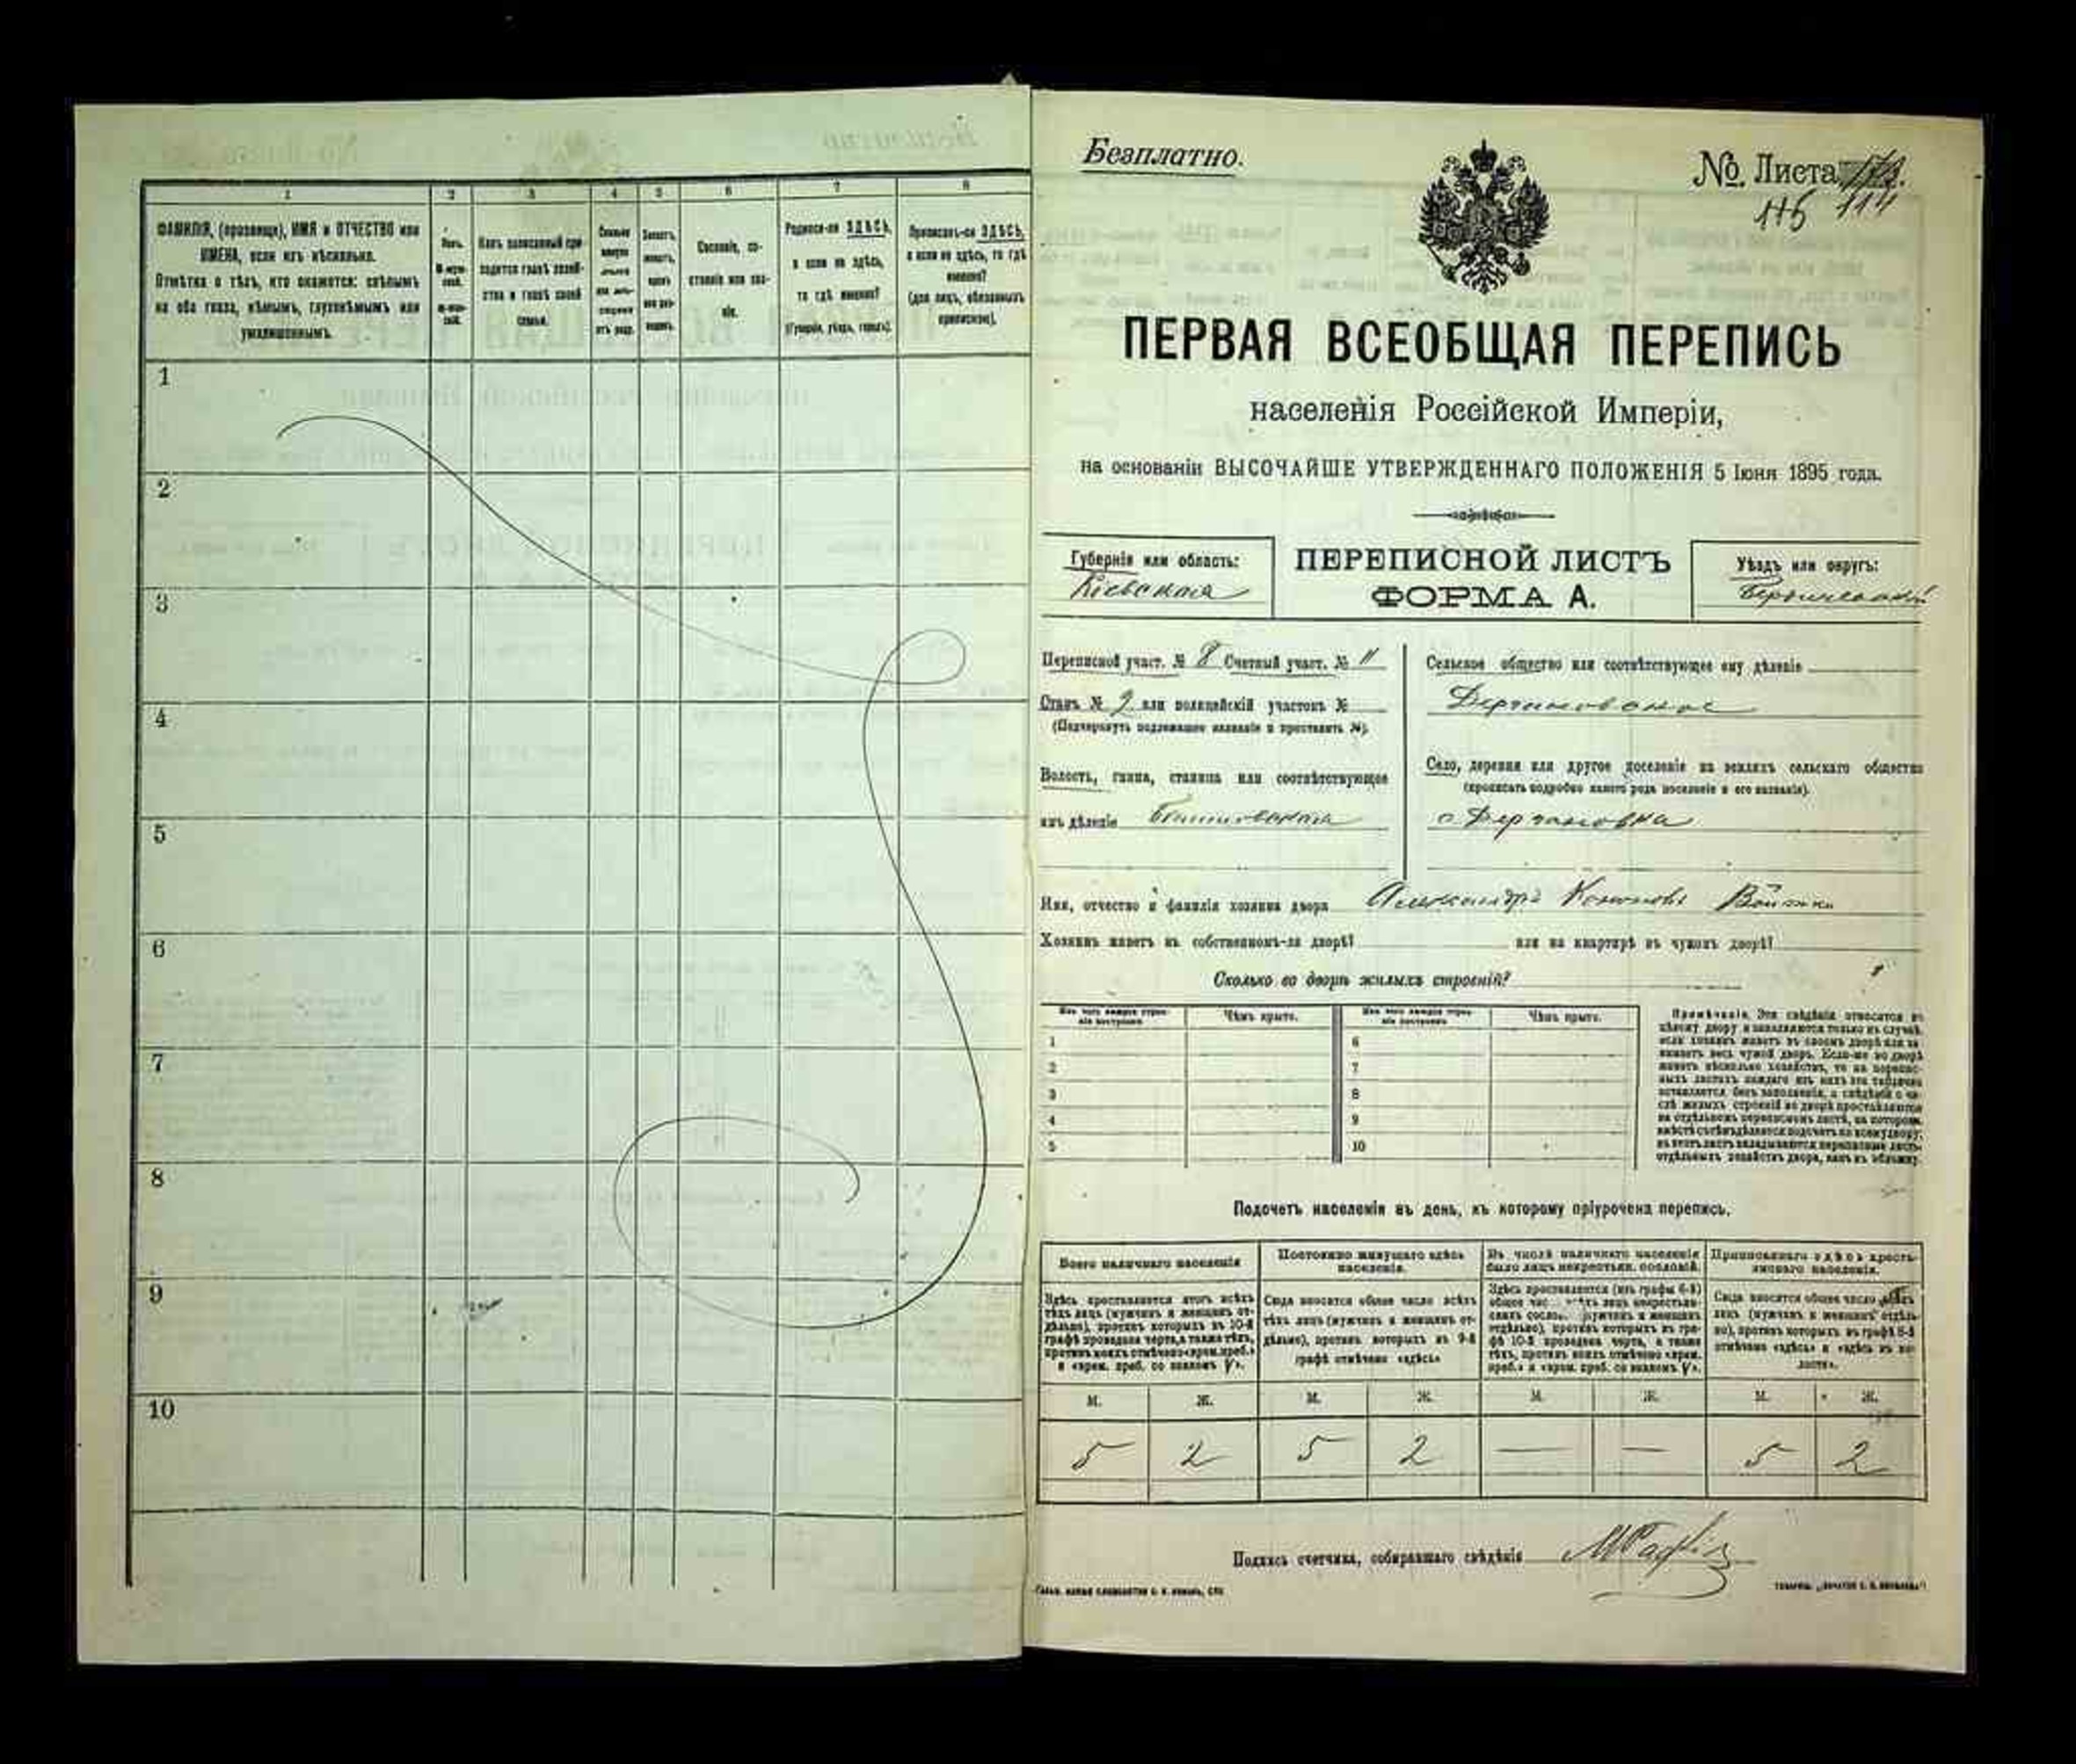 1
2
3
4
5
6
7
8
ФАМИЛІЯ, (прозвище), ИМЯ и ОТЧЕСТВО или
ИМЕНА, если ихъ нѣсколько.
Отмѣтка о тѣхъ, кто окажется: слѣпымъ
на оба глаза, нѣмымъ, глухонѣмымъ или
умалишеннымъ.
Полъ.
Какъ записанный при-
ходится главѣ хозяй-
ства и главѣ своей
семьи.
Сословіе, со-
стояніе или зва-
ніе.
Родился-ли ЗДѢСЬ,
а если не здѣсь,
то гдѣ именно?
(Губернія, уѣздъ, городъ).
Приписанъ-ли ЗДѢСЬ,
а если не здѣсь, то гдѣ
именно?
(для лицъ, обязанныхъ
припискою).
1
2
3
4
5
6
7
8
9
10
Безплатно.
№ Листа
115 114
ПЕРВАЯ ВСЕОБЩАЯ ПЕРЕПИСЬ
населенія Россійской Имперіи,
на основаніи ВЫСОЧАЙШЕ УТВЕРЖДЕННАГО ПОЛОЖЕНІЯ 5 Іюня 1895 года.
Губернія или область:
Кіевская
ПЕРЕПИСНОЙ ЛИСТЪ
ФОРМА А.
Уѣздъ или округъ:
Бердичевскій
Переписной участ. № 8 Счетный участ. № 11
Станъ № 2 или полицейскій участокъ №
(Подчеркнуть подлежащее названіе и проставить №).
Волость, гмина, станица или соотвѣтствующее
имъ дѣленіе
Сельское общество или соотвѣтствующее ему дѣленіе
Дергановское
Село, деревня или другое поселеніе на земляхъ сельскаго общества
(прописать подробно какого рода поселеніе и его названіе).
с Дергановка
Имя, отчество и фамилія хозяина двора Александръ Кононовъ
Хозяинъ живетъ въ собственномъ-ли дворѣ? или на квартирѣ въ чужомъ дворѣ?
Сколько во дворѣ жилыхъ строеній?
Изъ чего каждое строе-
ніе построено
Чѣмъ крыто.
Изъ чего каждое строе-
ніе построено
Чѣмъ крыто.
1
2
3
4
5
6
7
8
9
10
Примѣчаніе. Эти свѣдѣнія относятся къ
цѣлому двору и заполняются только въ случаѣ,
если хозяинъ живетъ въ своемъ дворѣ или за-
нимаетъ весь чужой дворъ. Если-же во дворѣ
живетъ нѣсколько хозяйствъ, то на перепис-
ныхъ листахъ каждаго изъ нихъ эта табличка
оставляется безъ заполненія, а свѣдѣнія о чи-
слѣ жилыхъ строеній во дворѣ проставляются
на отдѣльномъ переписномъ листѣ, на которомъ
вмѣстѣ съ тѣмъ дѣлается подсчетъ по всему двору;
въ этотъ листъ вкладываются переписные листы
отдѣльныхъ хозяйствъ двора, какъ въ обложку.
Подсчетъ населенія въ день, къ которому пріурочена перепись.
Всего наличнаго населенія
Постоянно живущаго здѣсь
населенія.
Въ числѣ наличнаго населенія
было лицъ некрестьян. сословій.
Приписаннаго здѣсь кресть-
янскаго населенія.
Здѣсь проставляется итогъ всѣхъ
тѣхъ лицъ (мужчинъ и женщинъ от-
дѣльно), противъ которыхъ въ 10-й
графѣ проведена черта, а также тѣхъ,
противъ коихъ отмѣчено «врем. преб.»
и «врем. преб. со знакомъ V».
Сюда вносится общее число всѣхъ
тѣхъ лицъ (мужчинъ и женщинъ от-
дѣльно), противъ которыхъ въ 9-й
графѣ отмѣчено «здѣсь»
Здѣсь проставляется (изъ графы 6-й)
общее тѣхъ лицъ некрестьян-
скихъ (мужчинъ и женщинъ
отдѣльно), противъ которыхъ въ гра-
фѣ 10-й проведена черта, а также
тѣхъ, противъ коихъ отмѣчено «врем.
преб.» и «врем. преб. со знакомъ V».
Сюда вносится общее число всѣхъ
лицъ (мужчинъ и женщинъ отдѣль-
но), противъ которыхъ въ графѣ 8-й
отмѣчено «здѣсь» и «здѣсь въ во-
лости».
М. Ж. М. Ж. М. Ж. М. Ж.
5 2 5 2 — — 5 2
Подпись счетчика, собиравшаго свѣдѣнія